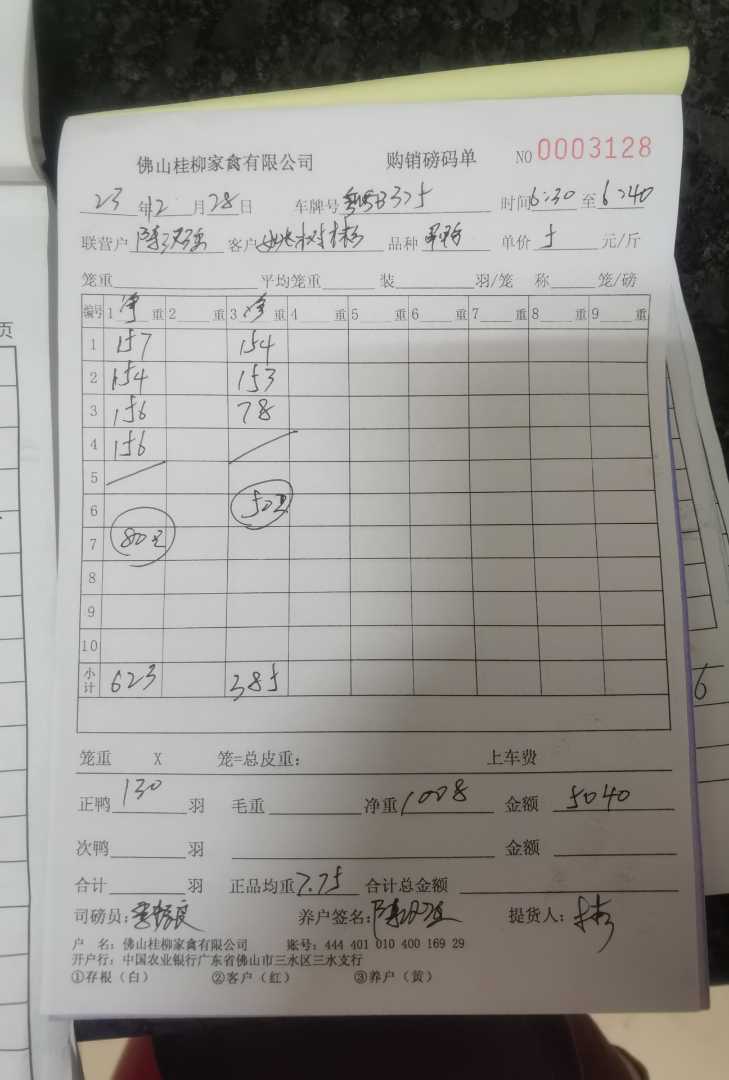 佛山桂柳家禽有限公司 购销磅码单 NO 0003128
23 年 12 月 28 日 车牌号 时间 6:30 至 6:40
联营户 陈 客户 姚树彬 品种 单价 5 元/斤
笼重 平均笼重 装 羽/笼 称 笼/磅
编号 1 净 重 2 重 3 净 重 4 重 5 重 6 重 7 重 8 重 9 重
1 157 154
2 154 153
3 156 78
4 156
5
6 50只
7 80只
8
9
10
小计 623 385
笼重 X 笼=总皮重: 上车费
正鸭 130 羽 毛重 净重 1008 金额 5040
次鸭 羽 金额
合计 羽 正品均重 7.75 合计总金额
司磅员: 养户签名: 陈 提货人:
户 名: 佛山桂柳家禽有限公司 账号: 444 401 010 400 169 29
开户行: 中国农业银行广东省佛山市三水区三水支行
①存根(白) ②客户(红) ③养户(黄)
页
6